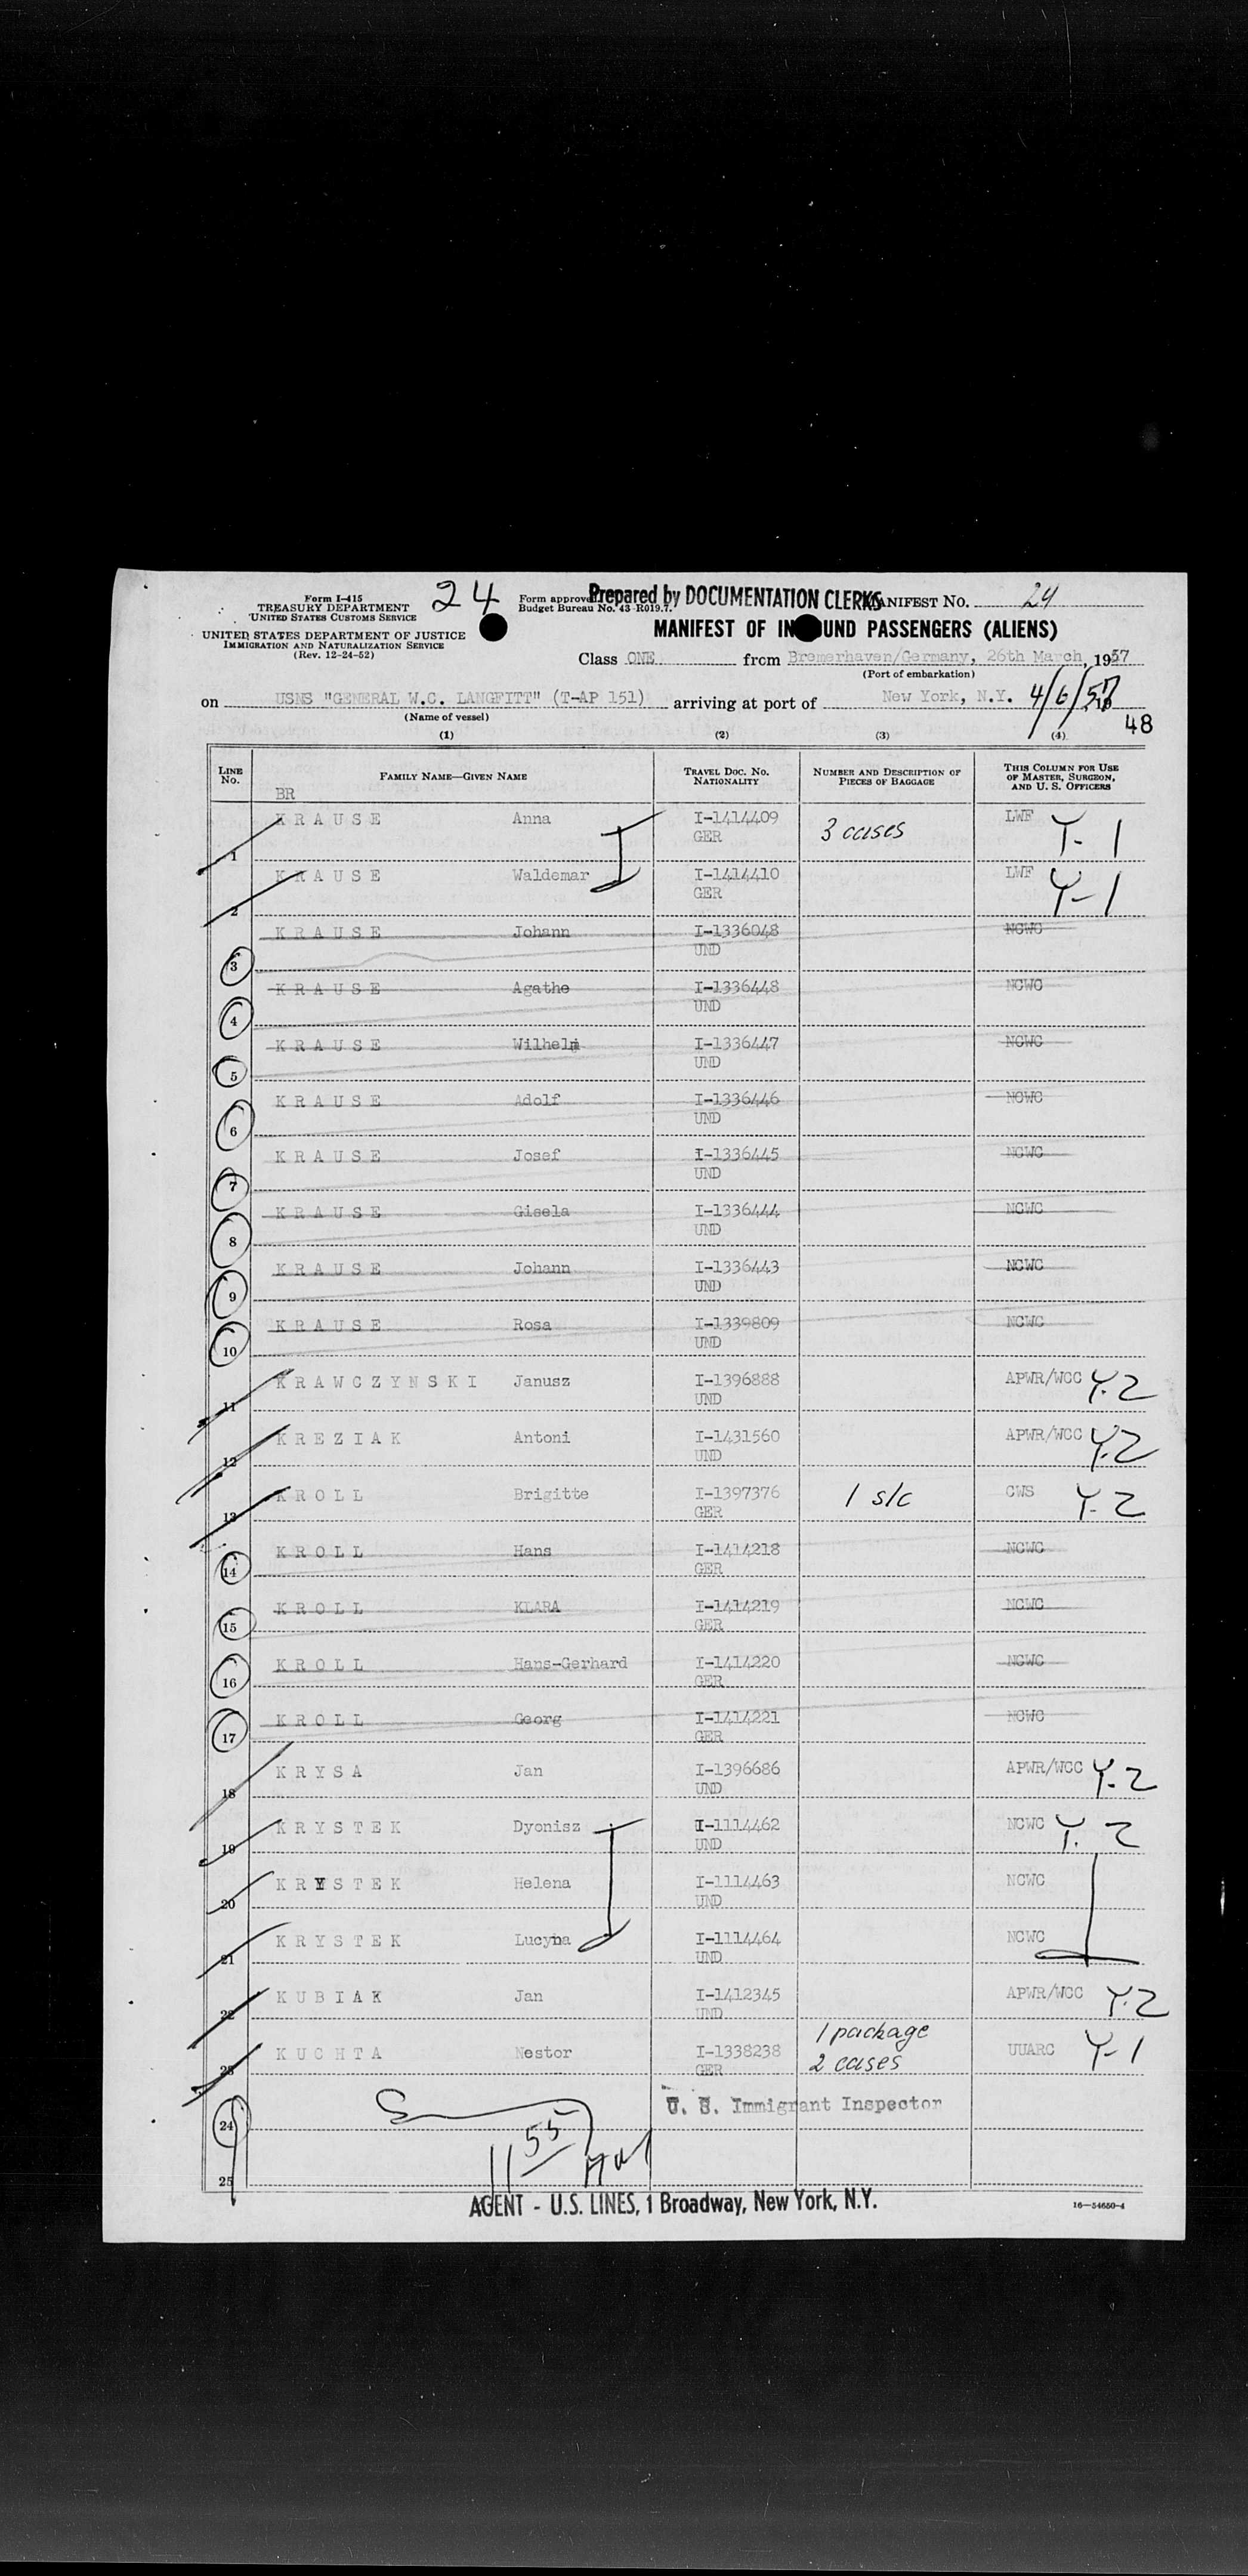 Form I-415
TREASURY DEPARTMENT
UNITED STATES CUSTOMS SERVICE
UNITED STATES DEPARTMENT OF JUSTICE
IMMIGRATION AND NATURALIZATION SERVICE
(Rev. 12-24-52)
24
Form approved
Budget Bureau No. 43-R019.7.
Prepared by DOCUMENTATION CLERKS
MANIFEST NO. 24
MANIFEST OF INBOUND PASSENGERS (ALIENS)
Class ONE from Bremerhaven/Germany, 26th March, 1957
(Port of embarkation)
on USNS "GENERAL W.C. LANGFITT" (T-AP 151) arriving at port of New York, N.Y. 4/6/57
(Name of vessel)
48
(1) (2) (3) (4)
LINE No. FAMILY NAME—GIVEN NAME TRAVEL DOC. NO. NATIONALITY NUMBER AND DESCRIPTION OF PIECES OF BAGGAGE THIS COLUMN FOR USE OF MASTER, SURGEON, AND U. S. OFFICERS
BR
1 KRAUSE Anna I-1414409 GER 3 cases LWF Y-1
2 KRAUSE Waldemar I-1414410 GER LWF Y-1
3 KRAUSE Johann I-1336048 UND NCWC
4 KRAUSE Agathe I-1336448 UND NCWC
5 KRAUSE Wilhelm I-1336447 UND NCWC
6 KRAUSE Adolf I-1336446 UND NCWC
7 KRAUSE Josef I-1336445 UND NCWC
8 KRAUSE Gisela I-1336444 UND NCWC
9 KRAUSE Johann I-1336443 UND NCWC
10 KRAUSE Rosa I-1339809 UND NCWC
11 KRAWCZYNSKI Janusz I-1396888 UND APWR/WCC Y-2
12 KREZIAK Antoni I-1431560 UND APWR/WCC Y-2
13 KROLL Brigitte I-1397376 GER 1 s/c CWS Y-2
14 KROLL Hans I-1414218 GER NCWC
15 KROLL KLARA I-1414219 GER NCWC
16 KROLL Hans-Gerhard I-1414220 GER NCWC
17 KROLL Georg I-1414221 GER NCWC
18 KRYSA Jan I-1396686 UND APWR/WCC Y-2
19 KRYSTEK Dyonisz I-1114462 UND NCWC Y-2
20 KRYSTEK Helena I-1114463 UND NCWC
21 KRYSTEK Lucyna I-1114464 UND NCWC
22 KUBIAK Jan I-1412345 UND APWR/WCC Y-2
23 KUCHTA Nestor I-1338238 GER 1 package 2 cases UUARC Y-1
24 U. S. Immigrant Inspector
11 55
25
AGENT - U.S. LINES, 1 Broadway, New York, N.Y.
16—54650-4